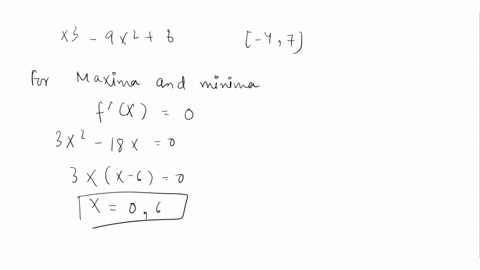 x3 - 9x² + 8 [-4, 7]
For Maxima and minima
f'(x) = 0
3x² - 18x = 0
3x(x-6) = 0
x = 0, 6